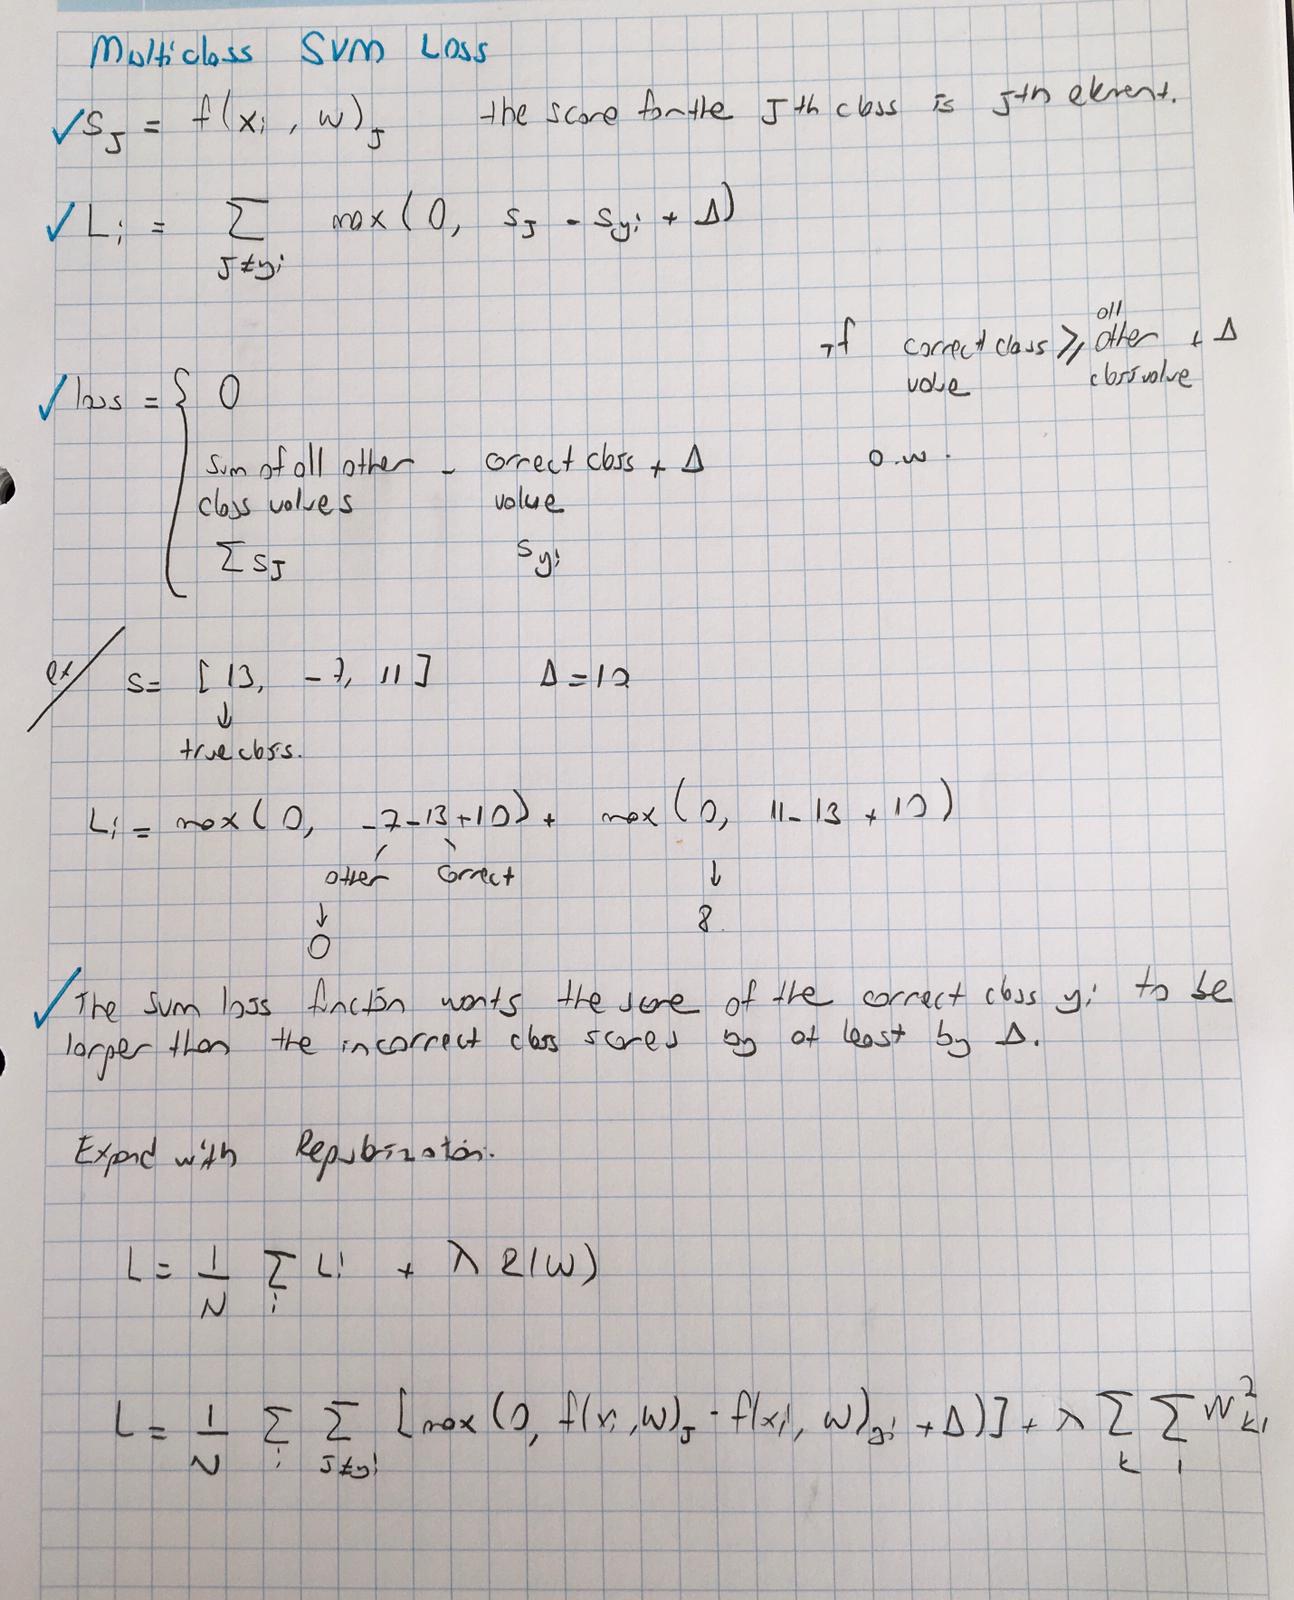 Multiclass SVM Loss
✓ s_J = f(x_i , W)_J the score for the Jth class is Jth element.
✓ L_i = Σ_{J≠y_i} max(0, s_J - s_{y_i} + Δ)
if correct class value ≥ all other class value + Δ
✓ loss = { 0
sum of all other class values - correct class value + Δ o.w.
Σ s_J s_{y_i}
ex/ s = [13, -7, 11] Δ = 10
↓
true class.
L_i = max(0, -7-13+10) + max(0, 11-13+10)
other correct ↓
↓ 8
0
✓ The SVM loss function wants the score of the correct class y_i to be
larger than the incorrect class scores by at least by Δ.
Expand with Regularization.
L = 1/N Σ_i L_i + λ R(W)
L = 1/N Σ_i Σ_{J≠y_i} [max(0, f(x_i, W)_J - f(x_i, W)_{y_i} + Δ)] + λ Σ_k Σ_l W²_{kl}